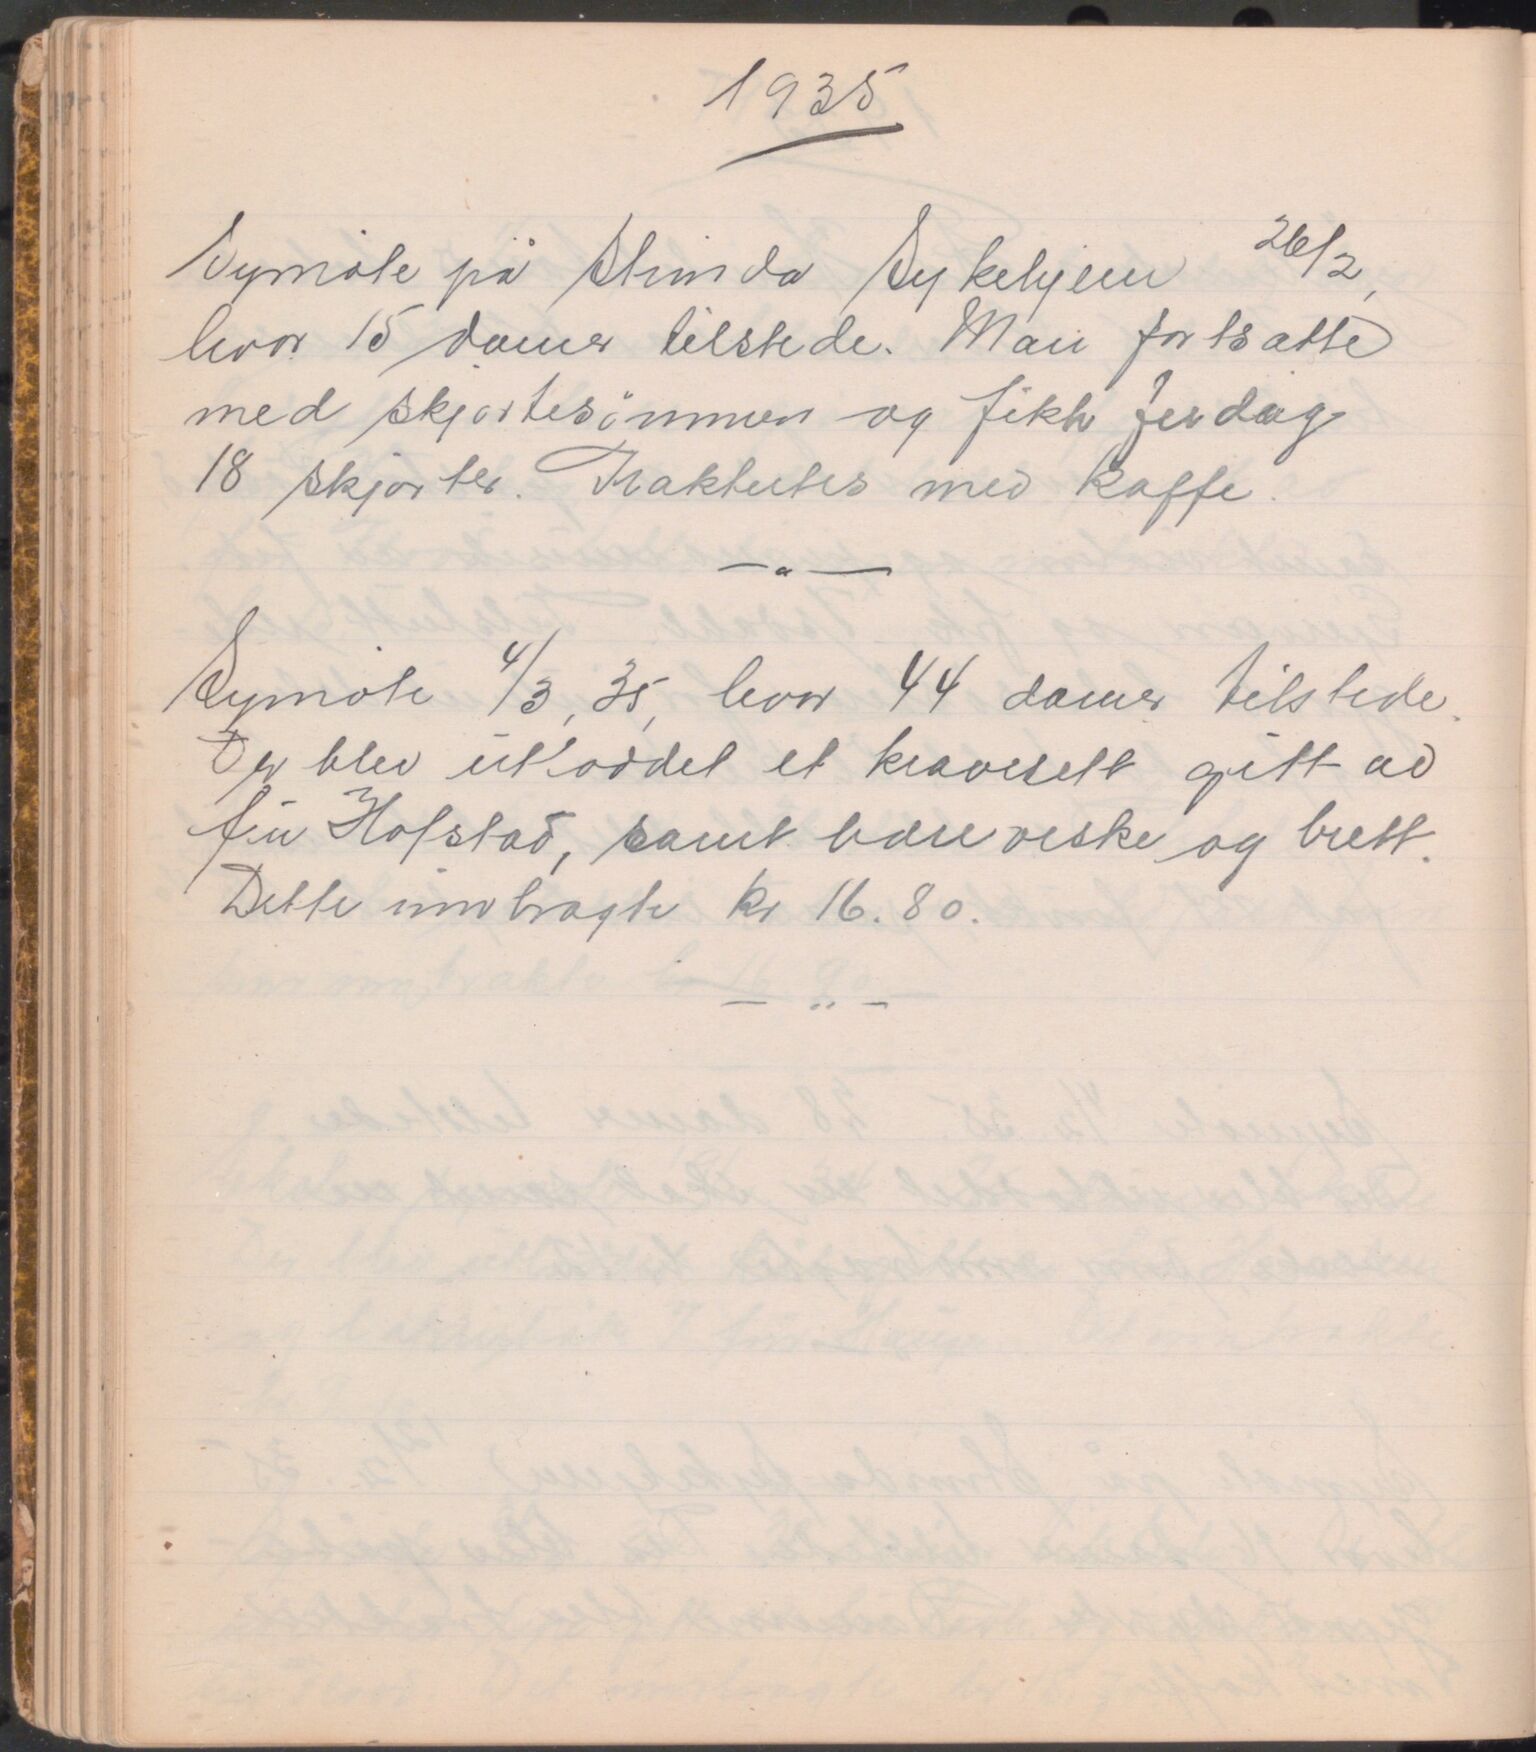 1935
Symöte på Strinda Sykehjem 26/2,
hvor 15 damer tilstede. Man fortsatte
med skjortesömmen og fikk ferdig
18 skjorter. Traktertes med kaffe.
Symöte 4/3, 35, hvor 44 damer tilstede.
Der blev utloddet et kravesett gitt av
fru Hofstad, samt bærveske og brett.
Dette innbragte kr 16.80.